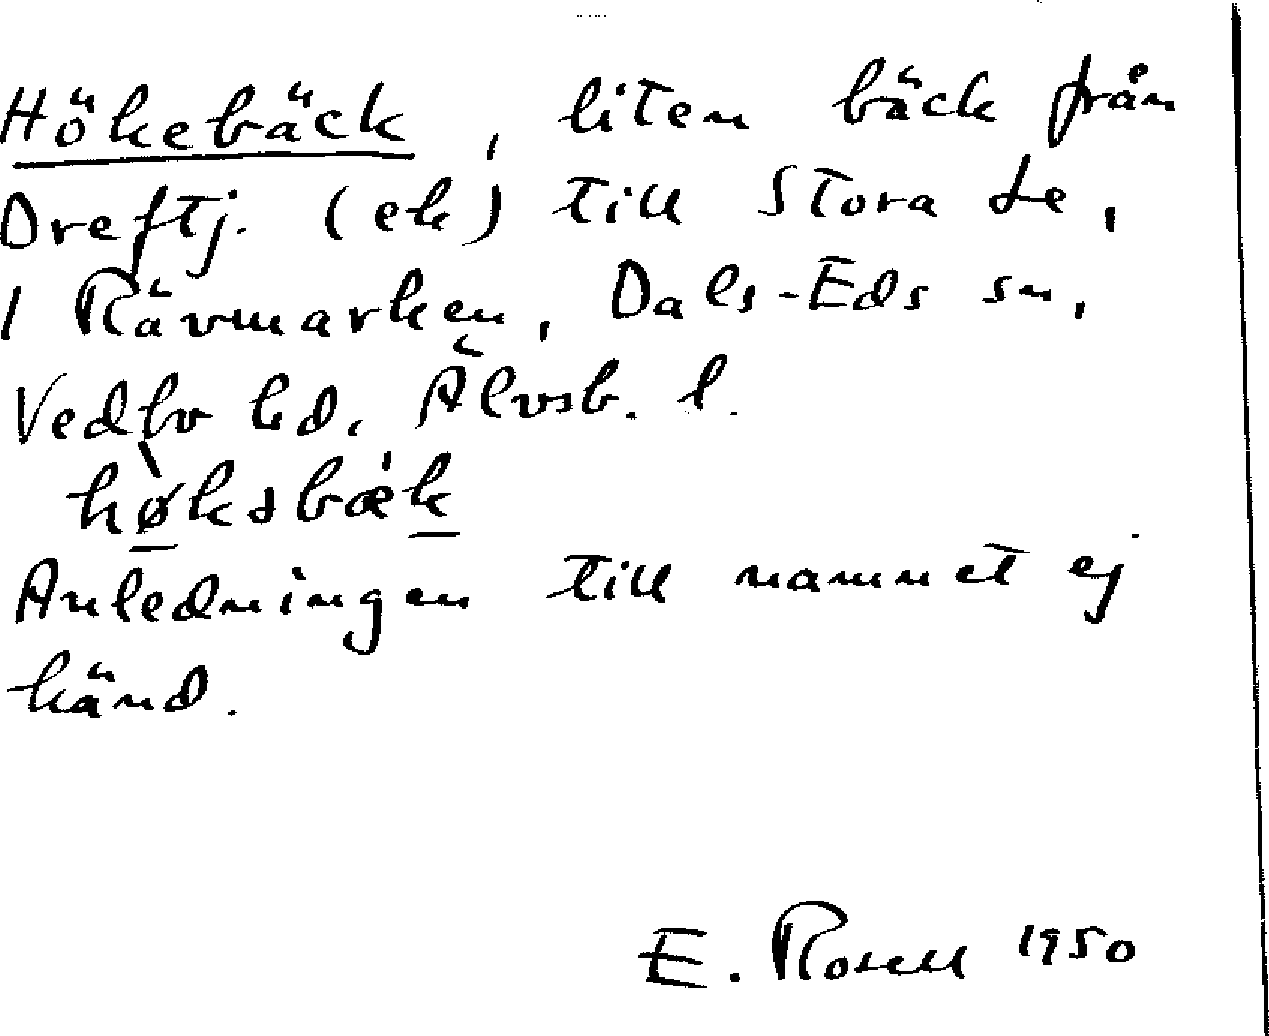 Hökebäck, liten bäck från
Dreftj. (ek) till Stora Le,
i Rävmarken, Dals-Eds sn,
Vedbo hd, Älvsb. l.
høkəbæk
Anledningen till namnet ej
känd.
E. Rosell 1950